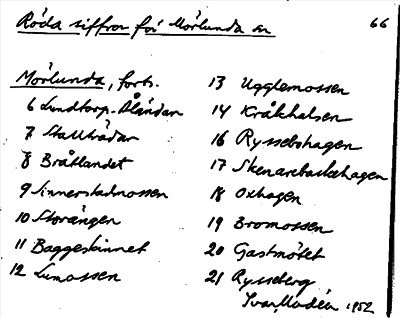 Röda siffror för Mörlunda sn
66
Mörlunda, forts.
6 Lundtorp-Åländan
7 Stallträdan
8 Bråtlandet
9 Sinnerstadmossen
10 Storängen
11 Baggeskinnet
12 Lumossen
13 Ugglemossen
14 Kråkhalsen
16 Ryssebshagen
17 Skenarebackehagen
18 Oxhagen
19 Bromossen
20 Gastmötet
21 Rysseberg
Ivar Modéer 1952